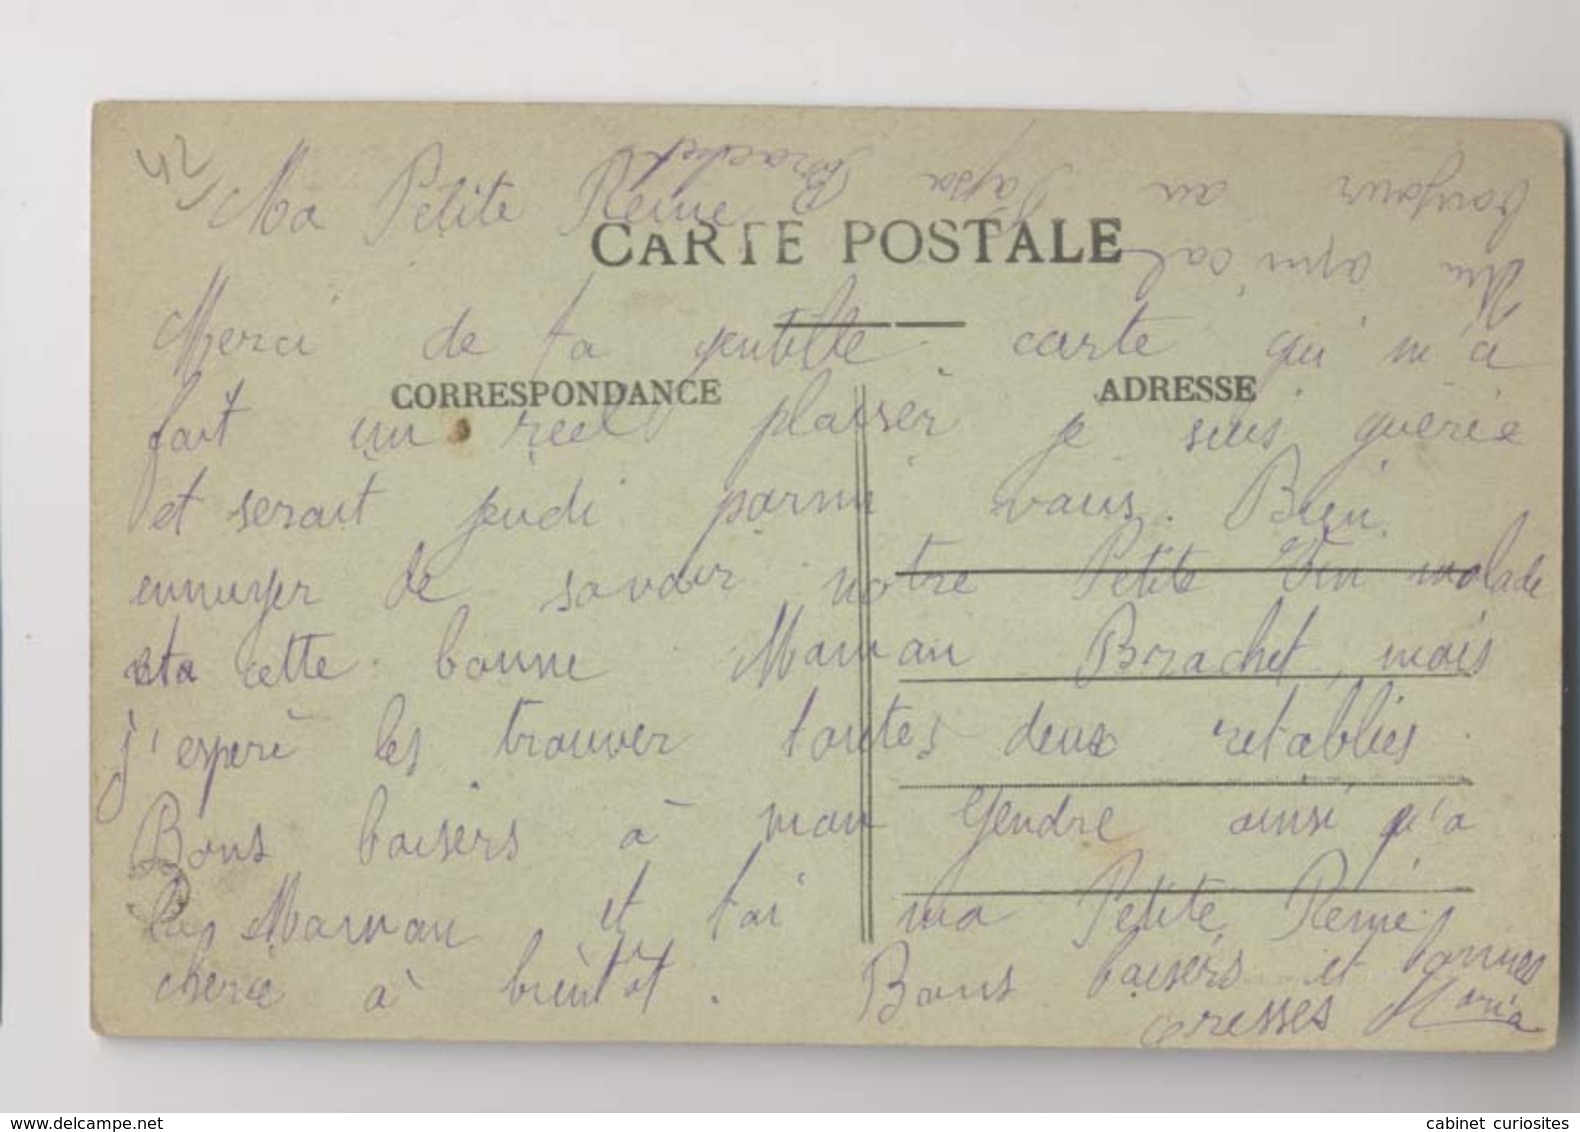 42
Ma Petite Reine
CARTE POSTALE
Merci de ta gentille carte qui m'a
CORRESPONDANCE
ADRESSE
fait un reel plaisèr je suis guèrie
et serait jeudi parmi vous. Bien
ennuyer de savoir notre Petite malade
cette bonne Maman Brachet, mais
j'esperè les trouver toutes deux retablies.
Bons baisers à mon Gendre ainsi q'a
Maman et toi ma Petite Reine
cherie à bientôt. Bons baisers et bonnes
caresses Maria
Un amical
bonjour au Papa
Brachet
cabinet curiosites